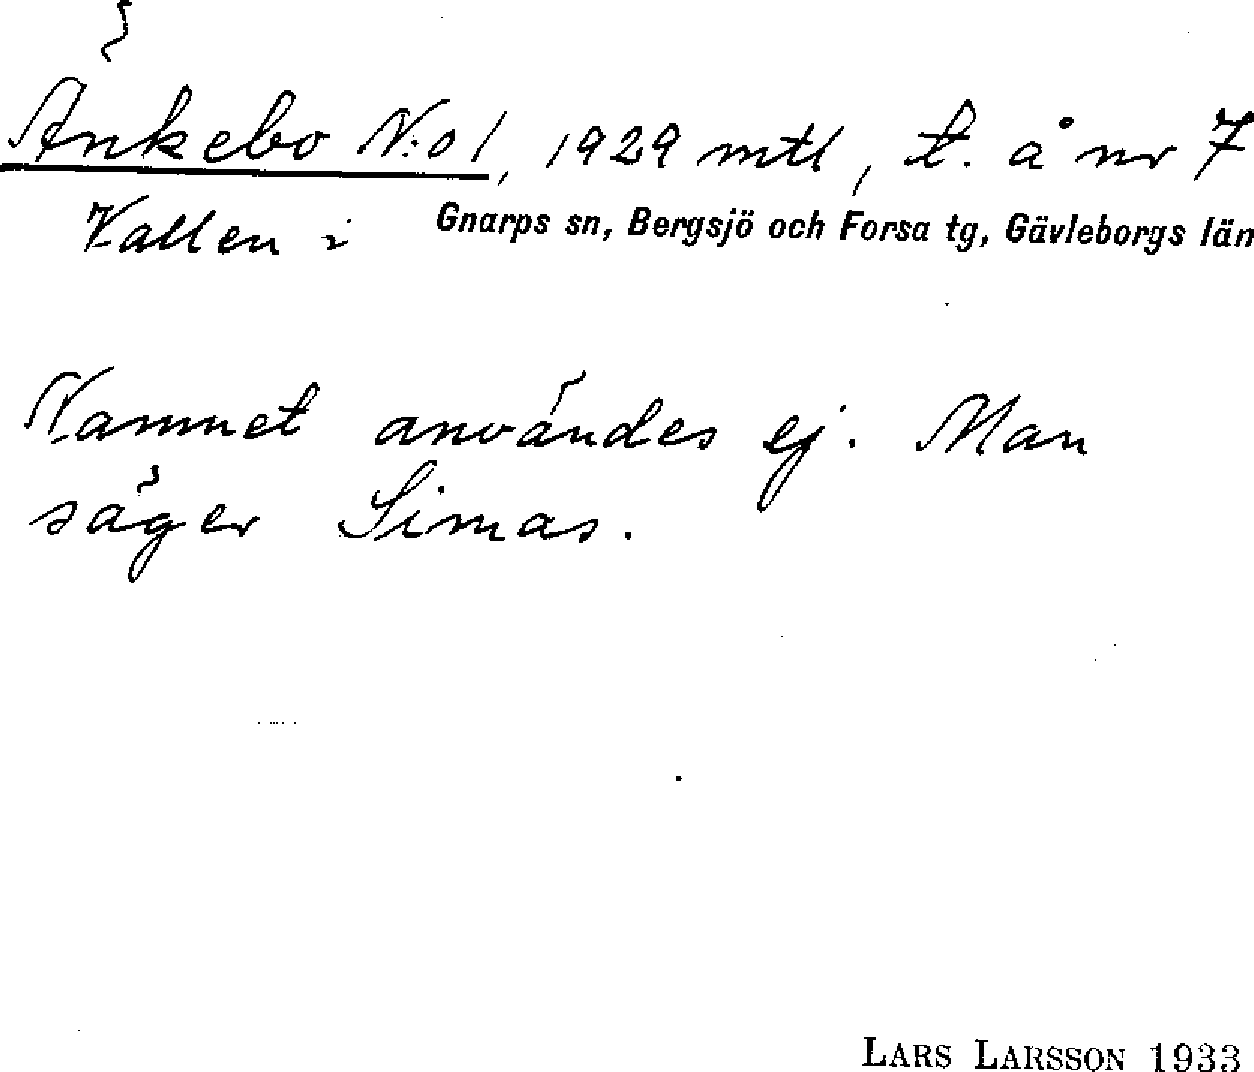 Änkebo N:o 1, 1929 mtl, t. å nr 7
Vallen i Gnarps sn, Bergsjö och Forsa tg, Gävleborgs län
Namnet användes ej. Man
säger Simas.
LARS LARSSON 1933